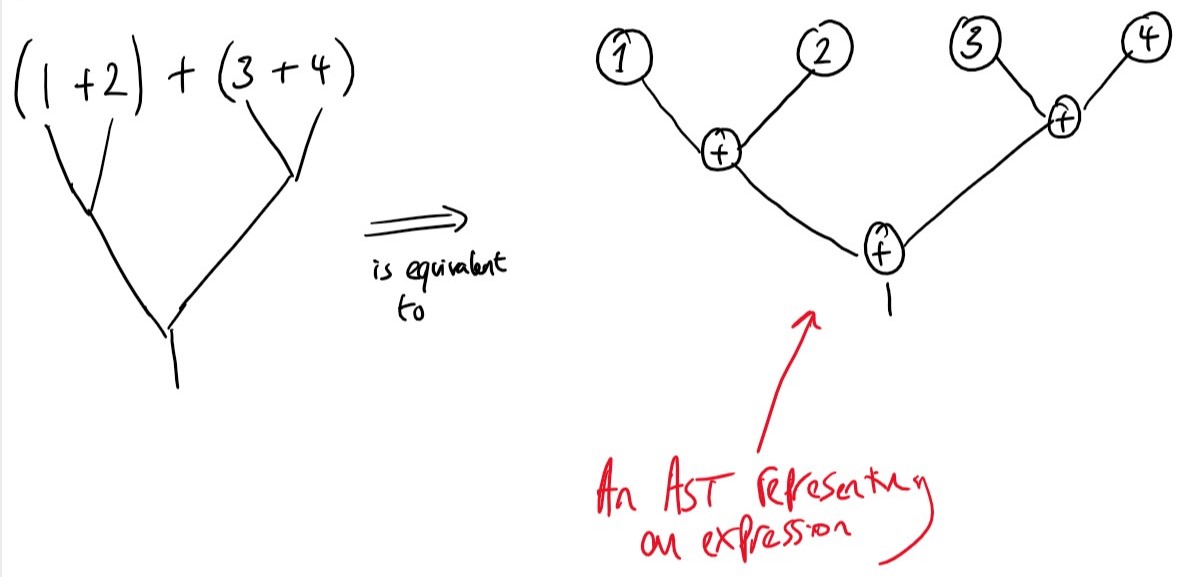 (1 + 2) + (3 + 4)
1
2
3
4
+
+
+
is equivalent
to
An AST representing
an expression